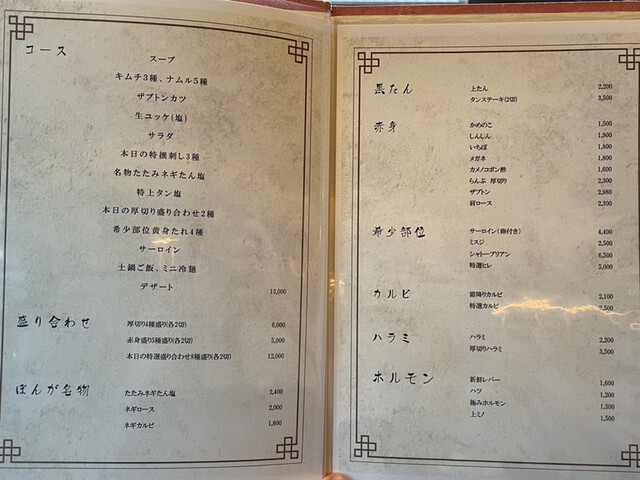 コース
スープ
キムチ3種、ナムル5種
ザブトンカツ
生ユッケ(塩)
サラダ
本日の特撰刺し3種
名物たたみネギたん塩
特上タン塩
本日の厚切り盛り合わせ2種
希少部位黄身たれ4種
サーロイン
土鍋ご飯、ミニ冷麺
デザート
13,000
盛り合わせ
厚切り4種盛り(各2切) 6,000
赤身盛り5種盛り(各2切) 5,000
本日の特選盛り合わせ8種盛り(各2切) 12,000
ぽんが名物
たたみネギたん塩 2,400
ネギロース 2,000
ネギカルビ 1,800
黒たん
上たん 2,200
タンステーキ(2切) 3,500
赤身
かめのこ 1,500
しんしん 1,900
いちぼ 1,800
メガネ 1,800
カメノコポン酢 1,600
らんぷ 厚切り 2,300
ザブトン 2,980
肩ロース 2,300
希少部位
サーロイン(卵付き) 4,400
ミスジ 2,500
シャトーブリアン 6,500
特選ヒレ 5,000
カルビ
霜降りカルビ 2,100
特選カルビ 2,500
ハラミ
ハラミ 2,200
厚切りハラミ 3,500
ホルモン
新鮮レバー 1,600
ハツ 1,200
極みホルモン 1,300
上ミノ 1,500